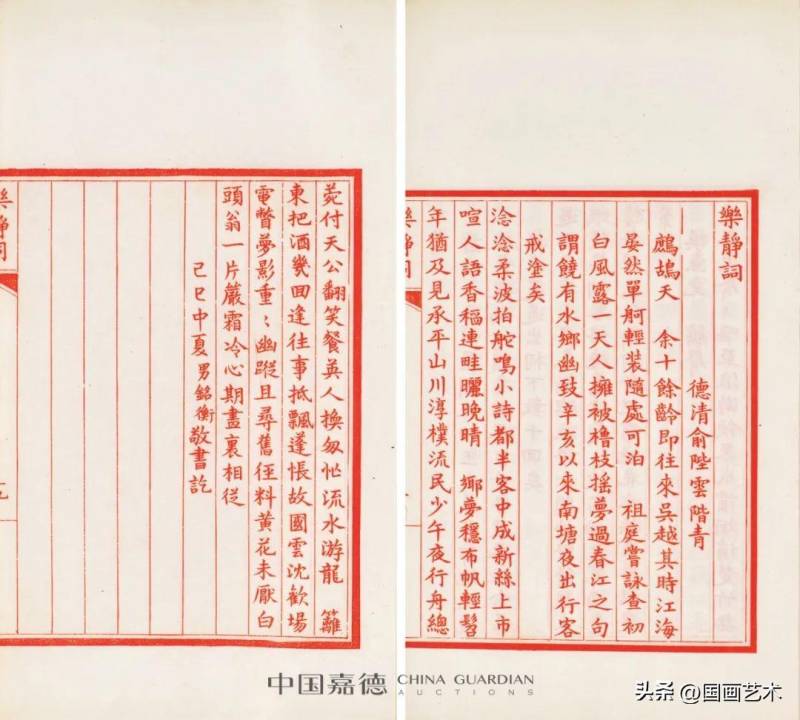 樂靜詞
德清俞陛雲階青
鷓鴣天　余十餘齡即往來吳越其時江海
晏然單舸輕裝隨處可泊　祖庭嘗詠查初
白風露一天人擁被櫓枝搖夢過春江之句
謂饒有水鄉幽致辛亥以來南塘夜出行客
戒塗矣
淰淰柔波拍舵鳴小詩都半客中成新絲上市
喧人語香稻連畦曬晚晴　鄉夢穩布帆輕髫
年猶及見承平山川淳樸流民少午夜行舟總
靜詞
菀付天公翻笑餐英人換匆忙流水游龍　籬
東把酒幾回逢往事抵飄蓬悵故國雲沈歡場
電瞥夢影重〻幽蹤且尋舊徑料黃花未厭白
頭翁一片嚴霜冷心期畫裏相從
己巳中夏男銘衡敬書訖
靜詞
中国嘉德 CHINA GUARDIAN
AUCTIONS
头条 @国画艺术